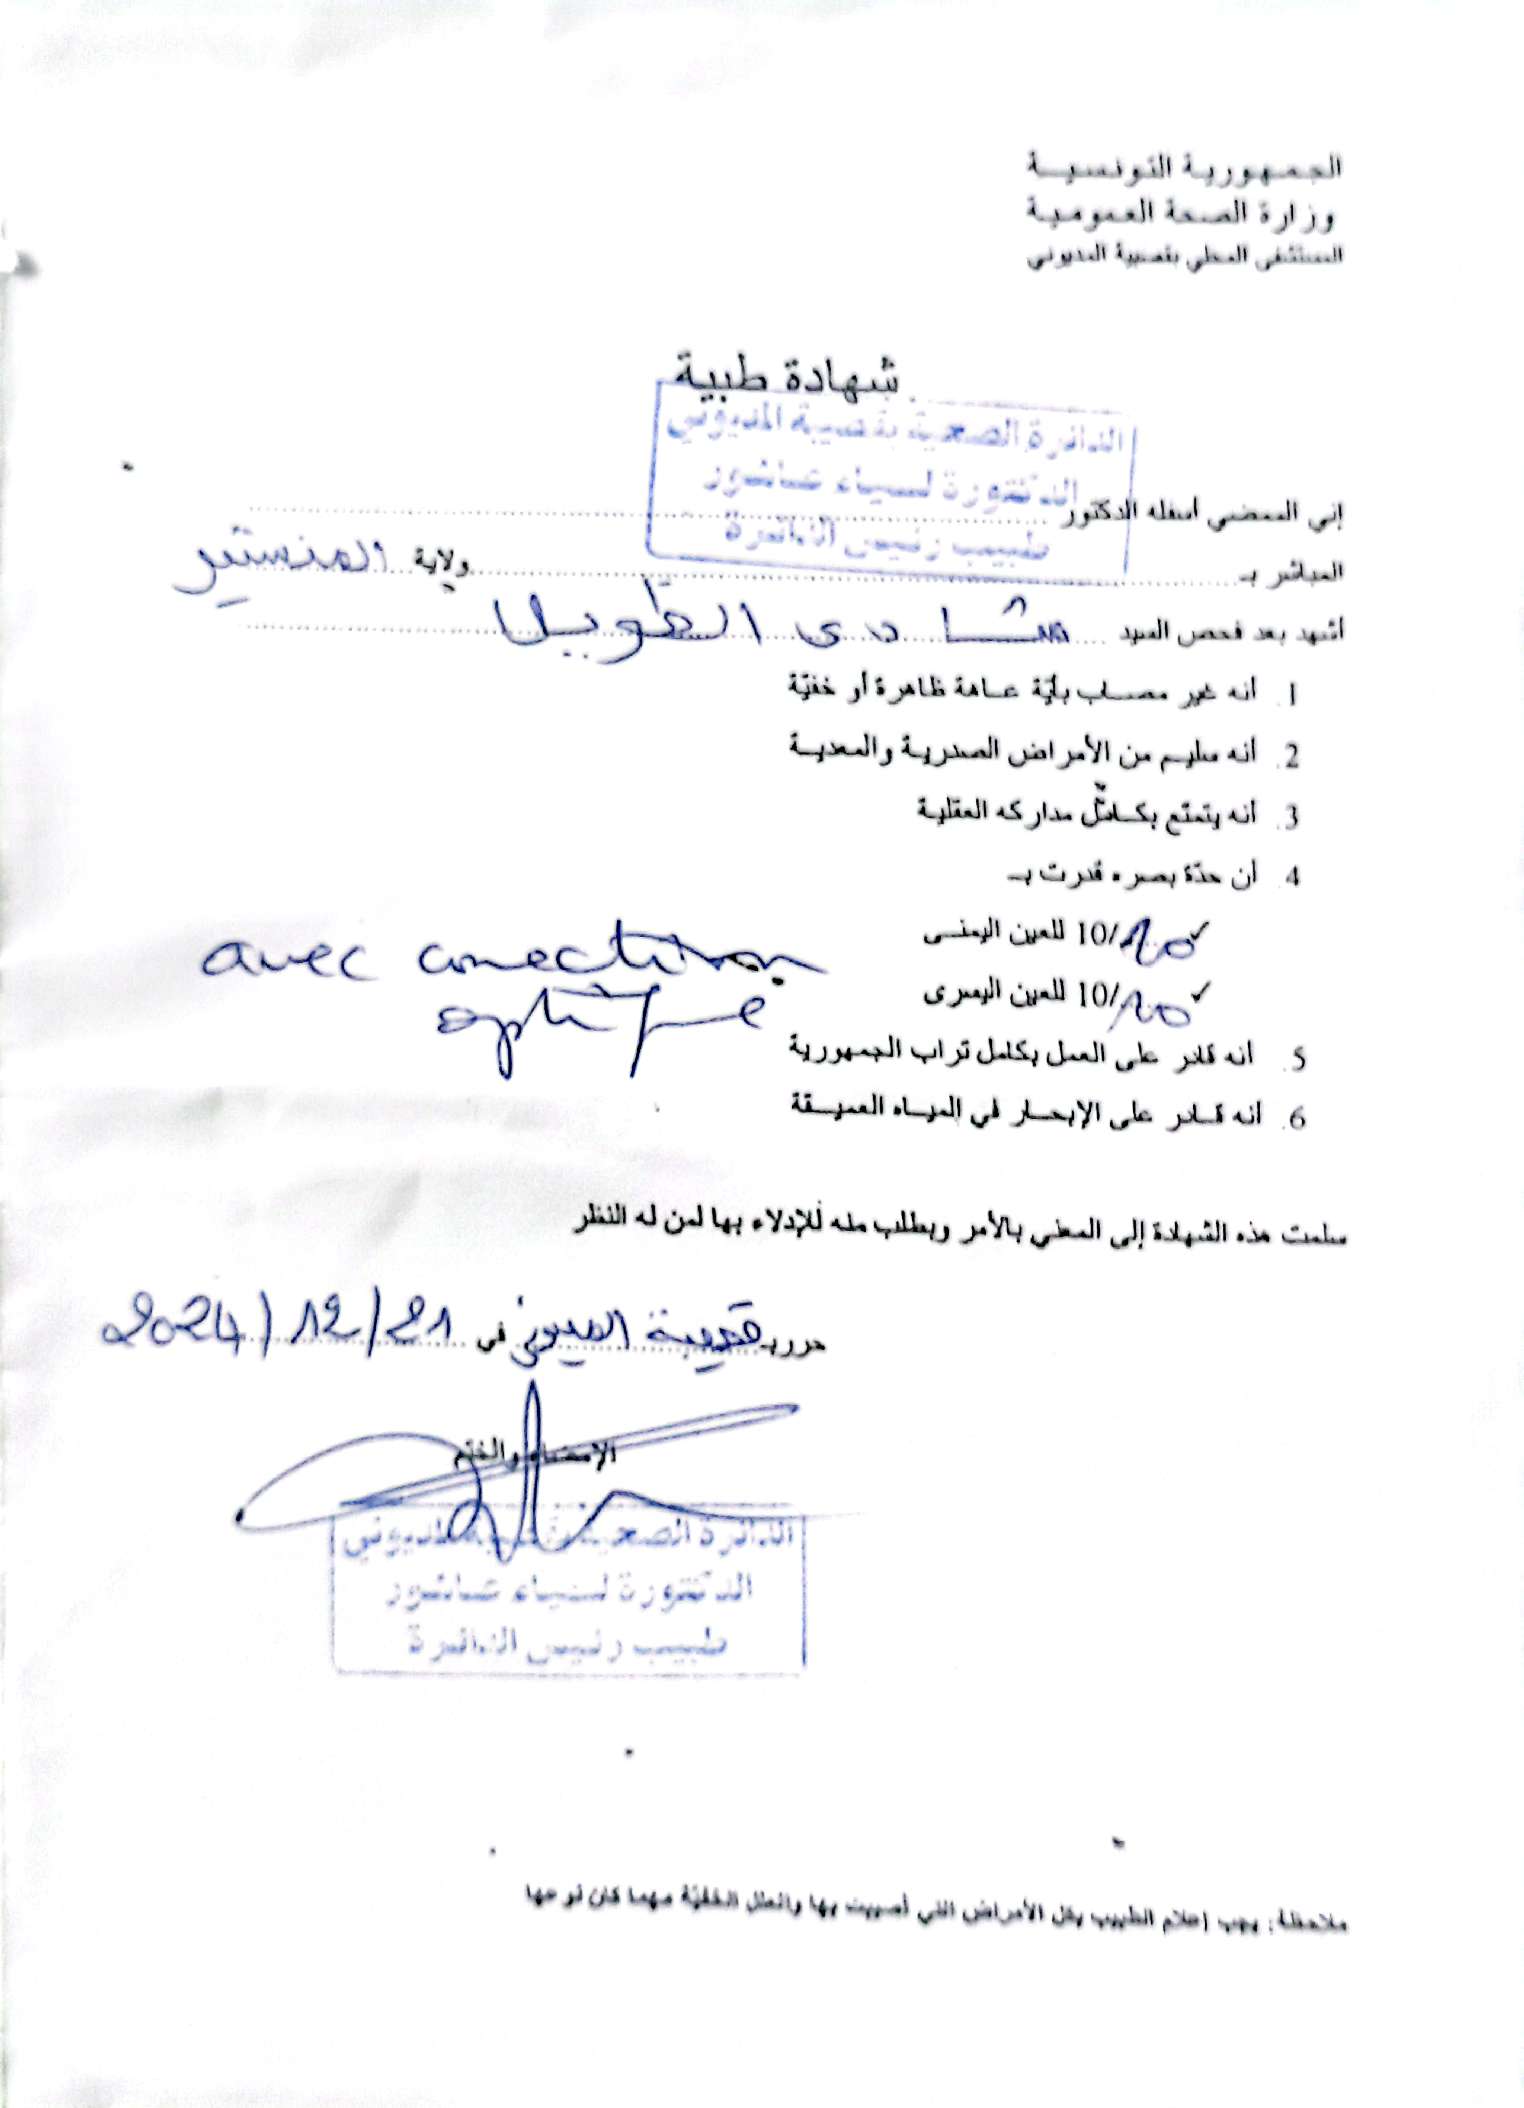 الجمهورية التونسية
وزارة الصحة العمومية
المستشفى المحلي بقصيبة المديوني
شهادة طبية
الدائرة الصحية بقصيبة المديوني
الدكتورة لمياء عاشور
طبيب رئيس الدائرة
إني الممضي أسفله الدكتور
المباشر بـ ولاية المنستير
أشهد بعد فحص السيد شادي الطويل
1. أنه غير مصاب بأيّة عاهة ظاهرة أو خفيّة
2. أنه سليم من الأمراض الصدرية والمعدية
3. أنه يتمتّع بكامل مداركه العقلية
4. أن حدّة بصره قدرت بـ
✓ 10/10 للعين اليمنى
avec correction
✓ 10/10 للعين اليسرى
optique
5. أنه قادر على العمل بكامل تراب الجمهورية
6. أنه قادر على الإبحار في المياه العميقة
سلمت هذه الشهادة إلى المعني بالأمر وبطلب منه للإدلاء بها لمن له النظر
حرر بـ قصيبة المديوني في 2024/12/21
الإمضاء والختم
الدائرة الصحية بقصيبة المديوني
الدكتورة لمياء عاشور
طبيب رئيس الدائرة
ملاحظة: يجب إعلام الطبيب بكل الأمراض التي أصيبت بها والعلل الخفيّة مهما كان نوعها